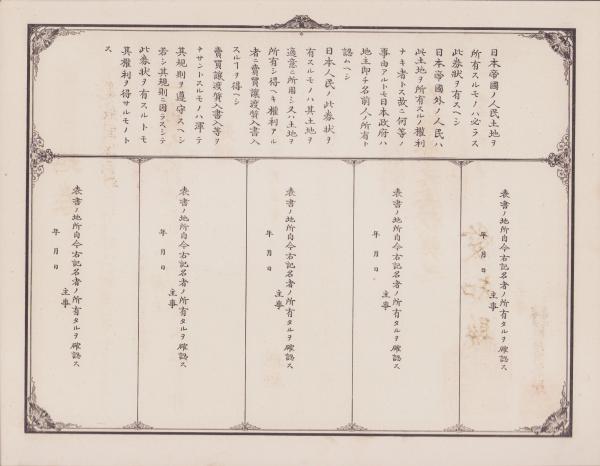 日本帝國ノ人民土地ヲ
所有スルモノハ必ラス
此券狀ヲ有スヘシ
日本帝國外ノ人民ハ
此土地ヲ所有スルノ權利
ナキ者トス故ニ何等ノ
事由アルトモ日本政府ハ
地主卽チ名前人ノ所有ト
認ムヘシ
日本人民ノ此券狀ヲ
有スルモノハ其土地ヲ
適意ニ所用シ又ハ土地ヲ
所有シ得ヘキ權利アル
者ニ賣買讓渡質入書入
スルヿヲ得ヘシ
賣買讓渡質入書入等ヲ
ナサントスルモノハ渾テ
其規則ヲ遵守スヘシ
若シ其規則ニ因ラスシテ
此券狀ヲ有スルトモ
其權利ヲ得サルモノト
ス
表書ノ地所自今右記名者ノ所有タルヲ確認ス
年月日
主事
表書ノ地所自今右記名者ノ所有タルヲ確認ス
年月日
主事
表書ノ地所自今右記名者ノ所有タルヲ確認ス
年月日
主事
表書ノ地所自今右記名者ノ所有タルヲ確認ス
年月日
主事
表書ノ地所自今右記名者ノ所有タルヲ確認ス
年月日
主事